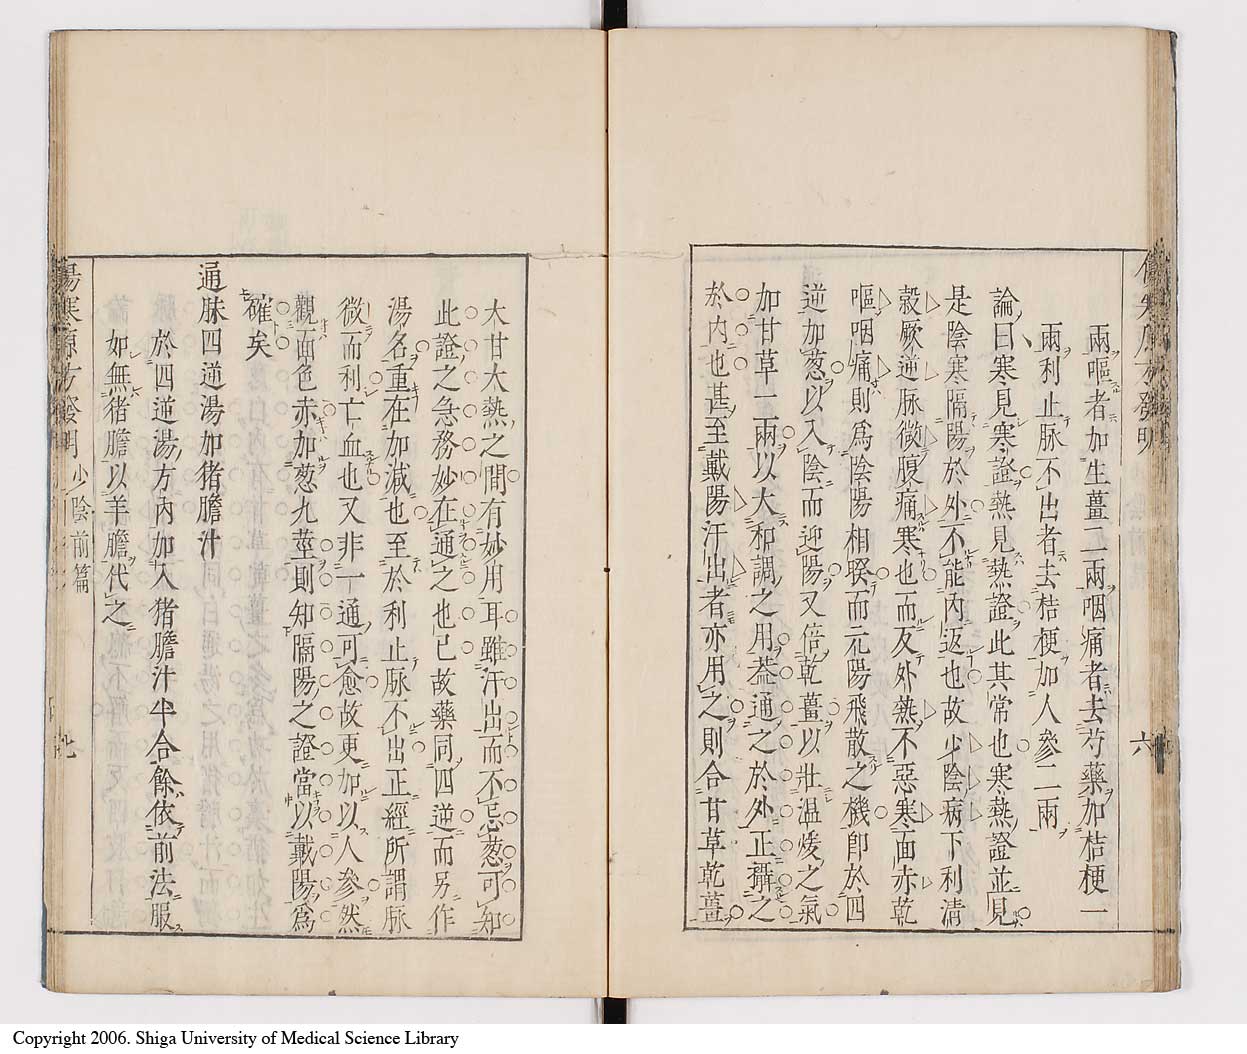 兩嘔者加生薑二兩咽痛者去芍藥加桔梗一
兩利止脉不出者去桔梗加人參二兩
論曰寒見寒證熱見熱證此其常也寒熱證並見
是陰寒隔陽於外不能內返也故少陰病下利淸
穀厥逆脉微腹痛寒也而反外熱不惡寒面赤乾
嘔咽痛則爲陰陽相睽而元陽飛散之機卽於四
逆加葱以入陰而迎陽又倍乾薑以壯溫煖之氣
加甘草一兩以大和調之用葢通之於外正攝之
於內也甚至戴陽汗出者亦用之則合甘草乾薑
大甘大熱之間有妙用耳雖汗出而不忌葱可知
此證之急務妙在通之也已故藥同四逆而另作
湯名重在加減也至於利止脉不出正經所謂脉
微而利亡血也又非一通可愈故更加以人參然
觀面色赤加葱九莖則知隔陽之證當以戴陽爲
確矣
通脉四逆湯加猪膽汁
於四逆湯方內加入猪膽汁半合餘依前法服
如無猪膽以羊膽代之
傷寒原方發明 少陰前篇